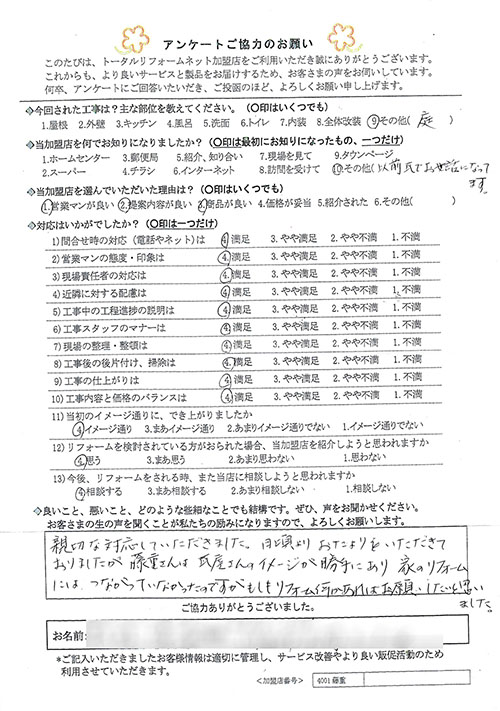 アンケートご協力のお願い
このたびは、トータルリフォームネット加盟店をご利用いただき誠にありがとうございます。
これからも、より良いサービスと製品をお届けするため、お客さまの声をお伺いしています。
何卒、アンケートにご回答いただき、ご投函のほど、よろしくお願い申し上げます。
◆今回された工事は？主な部位を教えてください。（〇印はいくつでも）
1.屋根 2.外壁 3.キッチン 4.風呂 5.洗面 6.トイレ 7.内装 8.全体改装 ⑨その他( 庭 )
◆当加盟店を何でお知りになりましたか？（〇印は最初にお知りになったもの、一つだけ）
1.ホームセンター 3.郵便局 5.紹介、知り合い 7.現場を見て 9.タウンページ
2.スーパー 4.チラシ 6.インターネット 8.訪問を受けて ⑩その他(以前瓦でお世話になって
ます。
◆当加盟店を選んでいただいた理由は？（〇印はいくつでも）
①営業マンが良い ②提案内容が良い ③商品が良い 4.価格が妥当 5.紹介された 6.その他( )
◆対応はいかがでしたか？（〇印は一つだけ）
1)問合せ時の対応（電話やネット)は ④満足 3.やや満足 2.やや不満 1.不満
2)営業マンの態度・印象は ④満足 3.やや満足 2.やや不満 1.不満
3)現場責任者の対応は ④満足 3.やや満足 2.やや不満 1.不満
4)近隣に対する配慮は ④満足 3.やや満足 2.やや不満 1.不満
5)工事中の工程進捗の説明は ④満足 3.やや満足 2.やや不満 1.不満
6)工事スタッフのマナーは ④満足 3.やや満足 2.やや不満 1.不満
7)現場の整理・整頓は ④満足 3.やや満足 2.やや不満 1.不満
8)工事後の後片付け、掃除は ④満足 3.やや満足 2.やや不満 1.不満
9)工事の仕上がりは ④満足 3.やや満足 2.やや不満 1.不満
10)工事内容と価格のバランスは ④満足 3.やや満足 2.やや不満 1.不満
11)当初のイメージ通りに、でき上がりましたか
④イメージ通り 3.まあイメージ通り 2.あまりイメージ通りでない 1.イメージ通りでない
12)リフォームを検討されている方がおられた場合、当加盟店を紹介しようと思われますか
④思う 3.まあ思う 2.あまり思わない 1.思わない
13)今後、リフォームをされる時、また当店に相談しようと思われますか
④相談する 3.まあ相談する 2.あまり相談しない 1.相談しない
◆良いこと、悪いこと、どのような些細なことでも結構です。ぜひ、声をお聞かせください。
お客さまの生の声を聞くことが私たちの励みになりますので、よろしくお願いします。
親切な対応していただきました。日頃より おたよりをいただきて
おりましたが 藤重さんは 瓦屋さんのイメージが勝手にあり 家のリフォーム
には つながっていなかったのですがもしもリフォーム何かあればお願いしたいと思い
ました。
ご協力ありがとうございました。
お名前:
*ご記入いただきましたお客様情報は適切に管理し、サービス改善やより良い販促活動のため
利用させていただきます。
<加盟店番号> 4001藤重